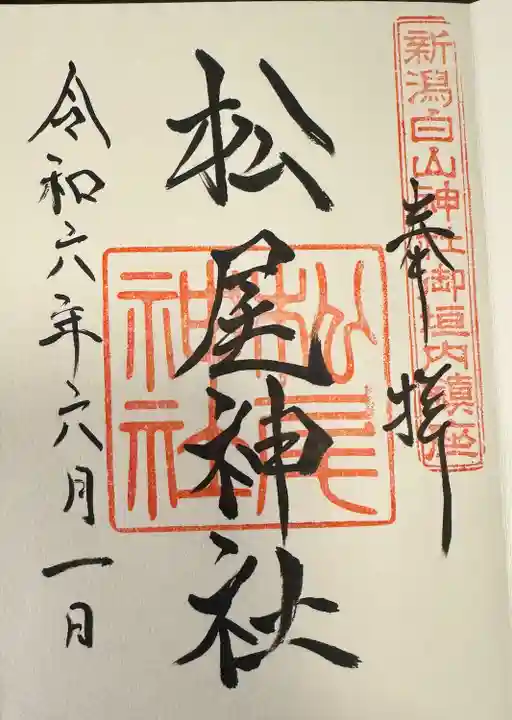 新潟白山神社御垣内鎮座
奉拝
松尾神社
松尾
神社
令和六年六月一日